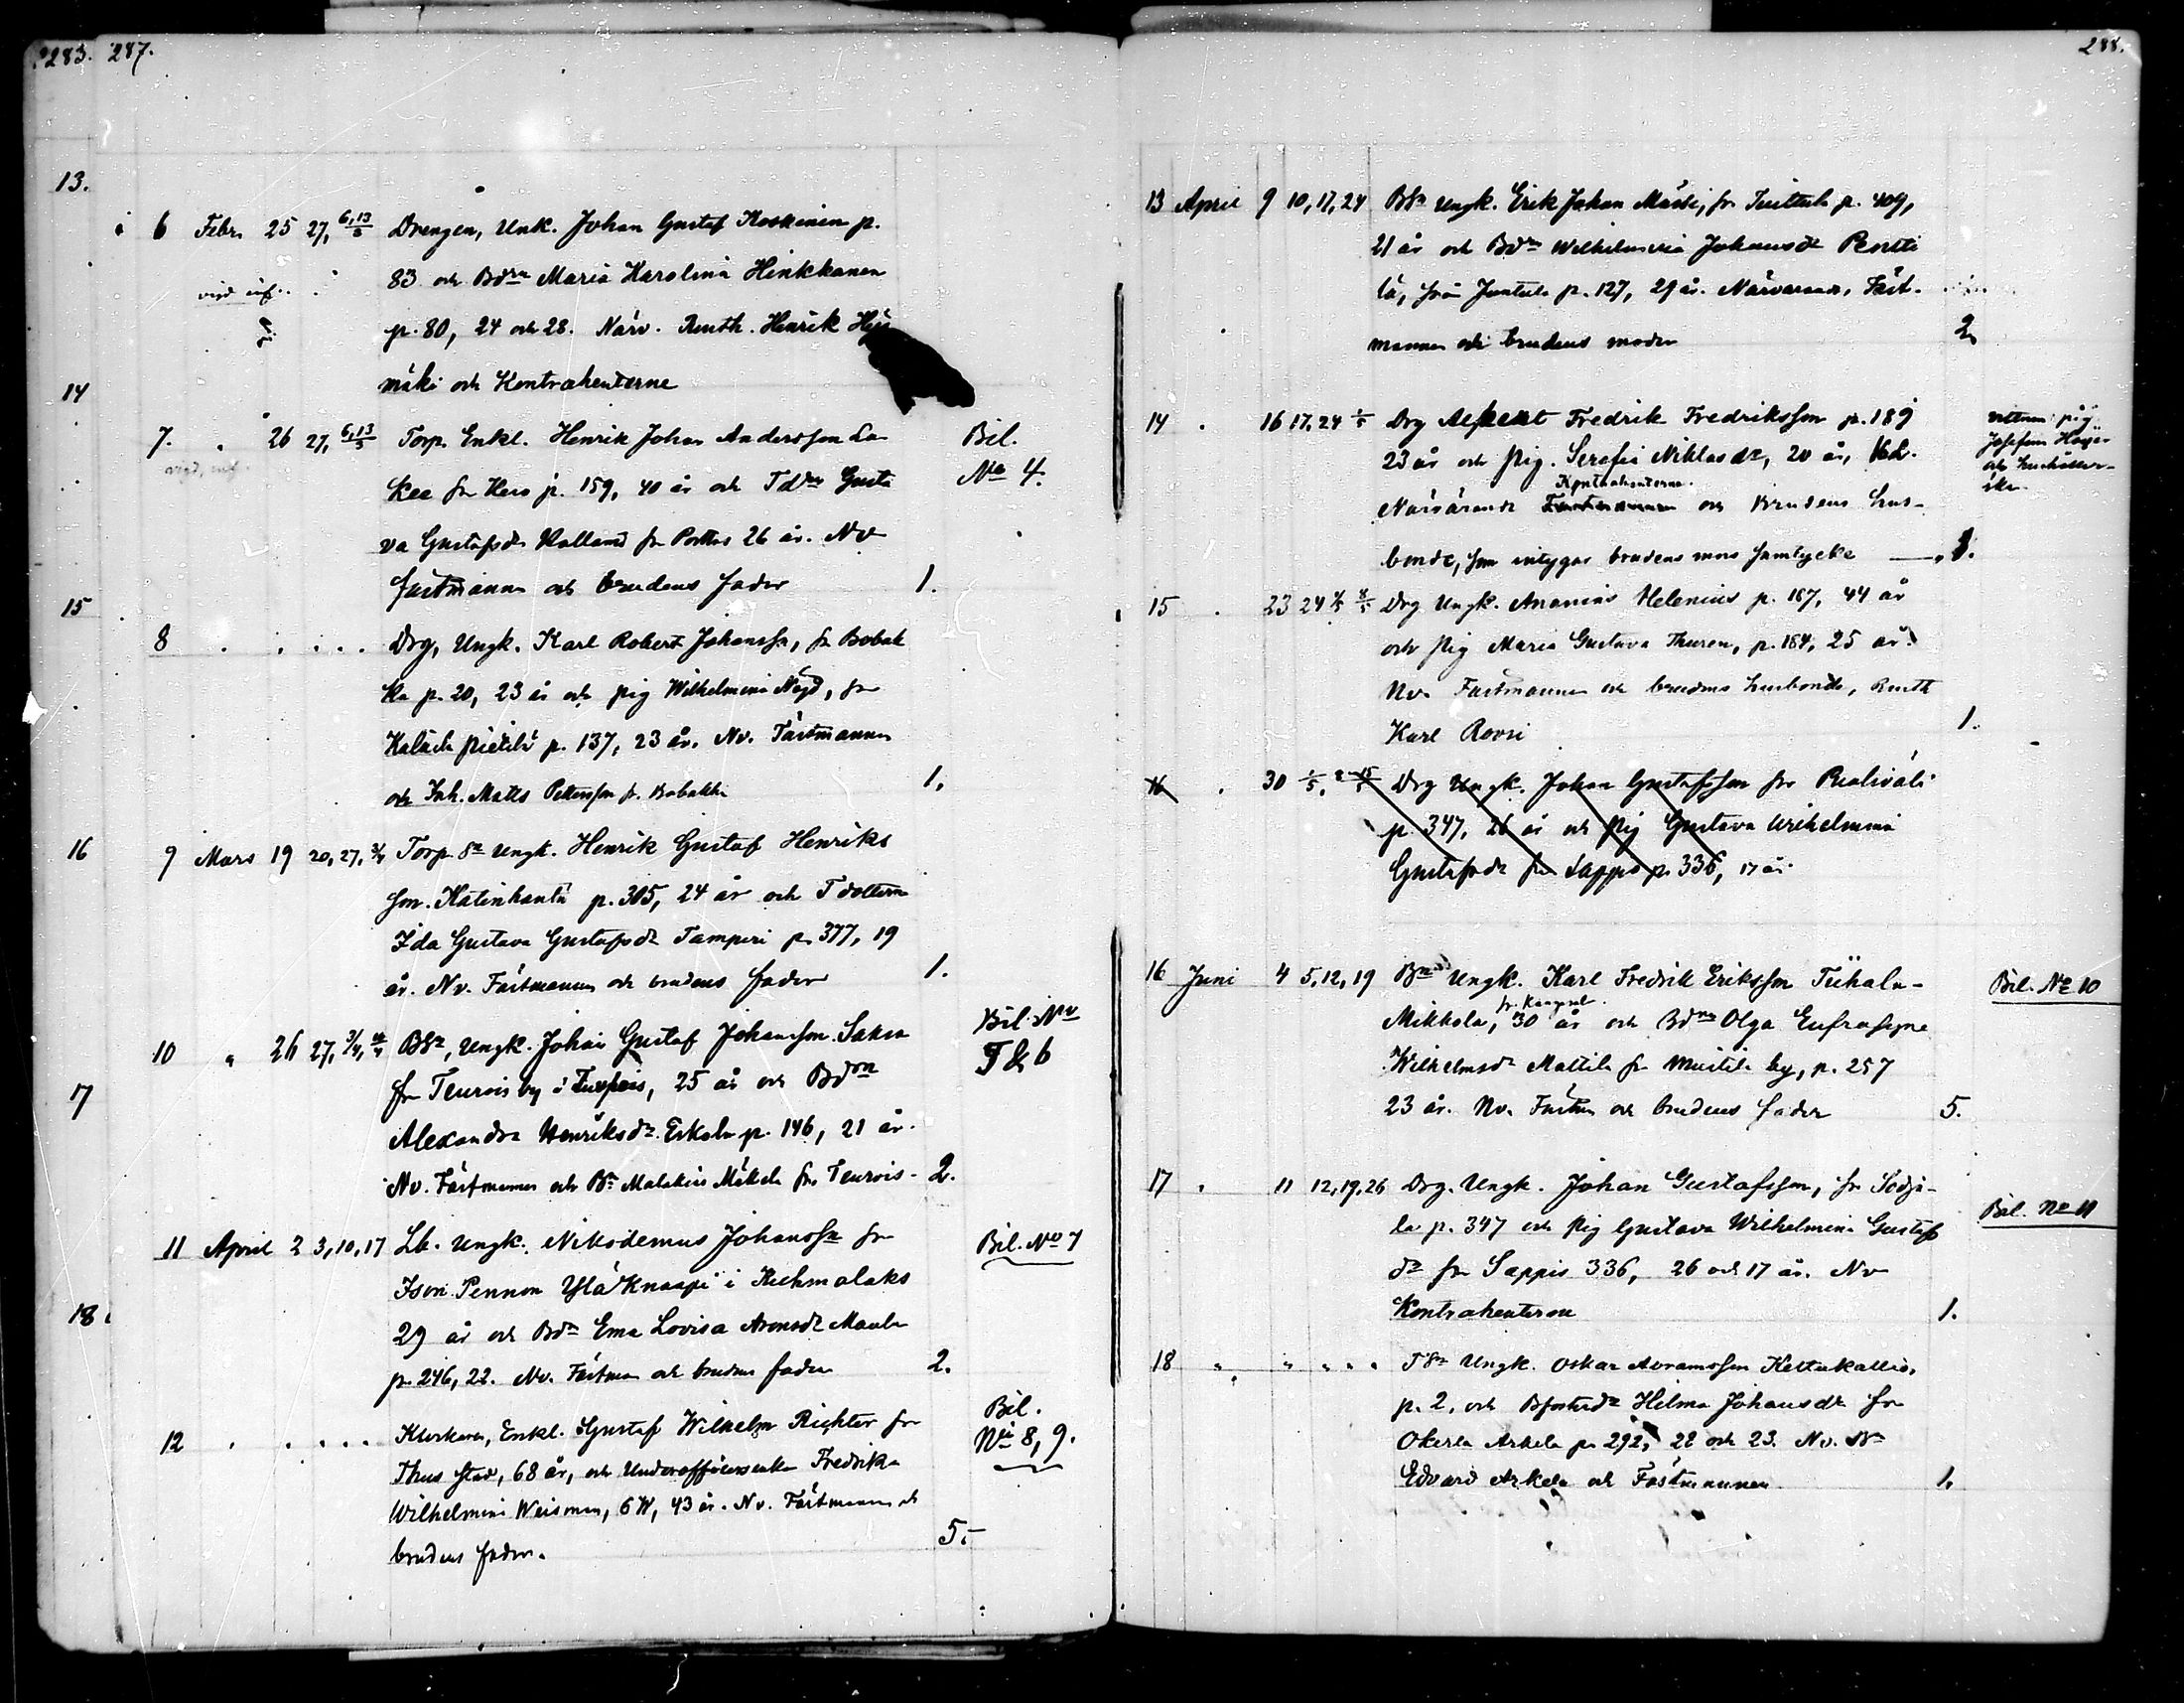 283. 287.
13.
6 Febr. 25 27, 6,13/3 Drengen, Unk. Johan Gustaf Koskinen p.
83 och Bdrn Maria Karolina Hinkkanen
p. 80, 24 och 28. Närv. Rusth. Henrik
mäki och Kontrahenterne
14
7. " 26 27, 6,13/3 Torp. Enkl. Henrik Johan Andersson La
kee fr p. 159, 40 år och Tdrn Gusta
va Gustafsdr fr 26 år. Nv
fästmannen och brudens fader 1.
Bil.
No 4.
15
8 Drg, Ungk. Karl Robert Johanss., fr Bobak
ka p. 20, 23 år och pig Wilhelmina, fr
p. 137, 23 år. Nv. Fästmannen
och Joh. Matts Pettersson fr. Bobakka 1.
16
9 Mars 19 20, 27, 3/4 Torp. Sn Ungk. Henrik Gustaf Henriks
son. Katinhanta p. 305, 24 år och Tdottern
Ida Gustava Gustafsdr Tamperi p. 377, 19
år. Nv. Fästmannen och brudens fader 1.
10 " 26 27, 3/4, 10/4 BSn, Ungk. Johan Gustaf Johansson Saksa
fr Teurois by i, 25 år och Bdrn
Alexandra Henriksdr. Erkola p. 146, 21 år.
Nv. Fästmannen och Bn Malakias Mäkelä fr. Teurois- 2.
Bil. No
5 & 6
17
11 April 2 3, 10, 17 Lb. Ungk. Nikodemus Johanss. fr
Pennon Ylä Knaapi i Kuhmalaks
29 år och Bdr Ema Lovisa Aronsdr Maula
p. 246, 22. Nv. Fästman och brudens fader 2.
Bil. No 7
18
12 Klockaren, Enkl. Gustaf Wilhelm Richter fr
stad, 68 år, och Underofficersenkan Fredrika
Wilhelmina Weisman, 6 W, 43 år. Nv. Fästmannen och
brudens fader. 5.-
Bil.
No 8, 9.
288.
13 April 9 10, 17, 24 BSn Ungk. Erik Johan, fr p. 409,
21 år och Bdrn Wilhelmina Johansdr Pentti
lä, från Juntula p. 127, 29 år. Närvarande, Fäst-
mannen och brudens moder 2.
14 " 16 17, 24 1/5 Drg Fredrik Fredriksson p. 189
23 år och Pig. Serafia Niklasdr, 20 år, ibd.
Kontrahenterne
Närvarande och Brudens hus-
bonde, som intygar brudens mors samtycke
vittnen: pig
Josefina
och hushåller-
ska
15 " 23 24 1/5 8/5 Drg Ungk. Ananias Helenius p. 187, 44 år
och Pig Maria Gustava Thuren, p. 184, 25 år.
Nv. Fästmannen och brudens husbonde, Rusth
Karl Rovsi 1.
16 " 30 1/5, 8 15/5 Drg Ungk. Johan Gustafsson fr
p. 347, 26 år och Pig Gustava Wilhelmina
Gustafsdr fr Sappis p. 336, 17 år.
16 Juni 4 5, 12, 19 Bn Ungk. Karl Fredrik Eriksson
fr. Kangsal
Mikkola, 30 år och Bdrn Olga Eufrosyne
Wilhelmsdr Mattila fr by, p. 257
23 år. Nv. och brudens fader 5.
Bil. No 10
17 " 11 12, 19, 26 Drg. Ungk. Johan Gustafsson, fr
la p. 347 och Pig Gustava Wilhelmina Gustafs
dr fr Sappis 336, 26 och 17 år. Nv
Kontrahenterne 1.
Bil. No 11
18 " " " " " TSn Ungk. Oskar Avramsson Kettukallio,
p. 2, och Hilma Johansdr fr
Arkela p. 292, 22 och 23. Nv. Bn
Edvard Arkela och Fästmannen 1.